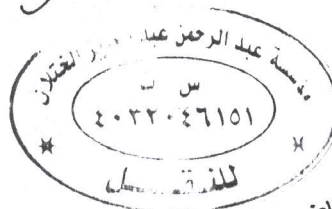 مؤسسة عبد الرحمن عبد الختلان
س ت
٤٠٣٢٠٤٦١٥١
للنقل